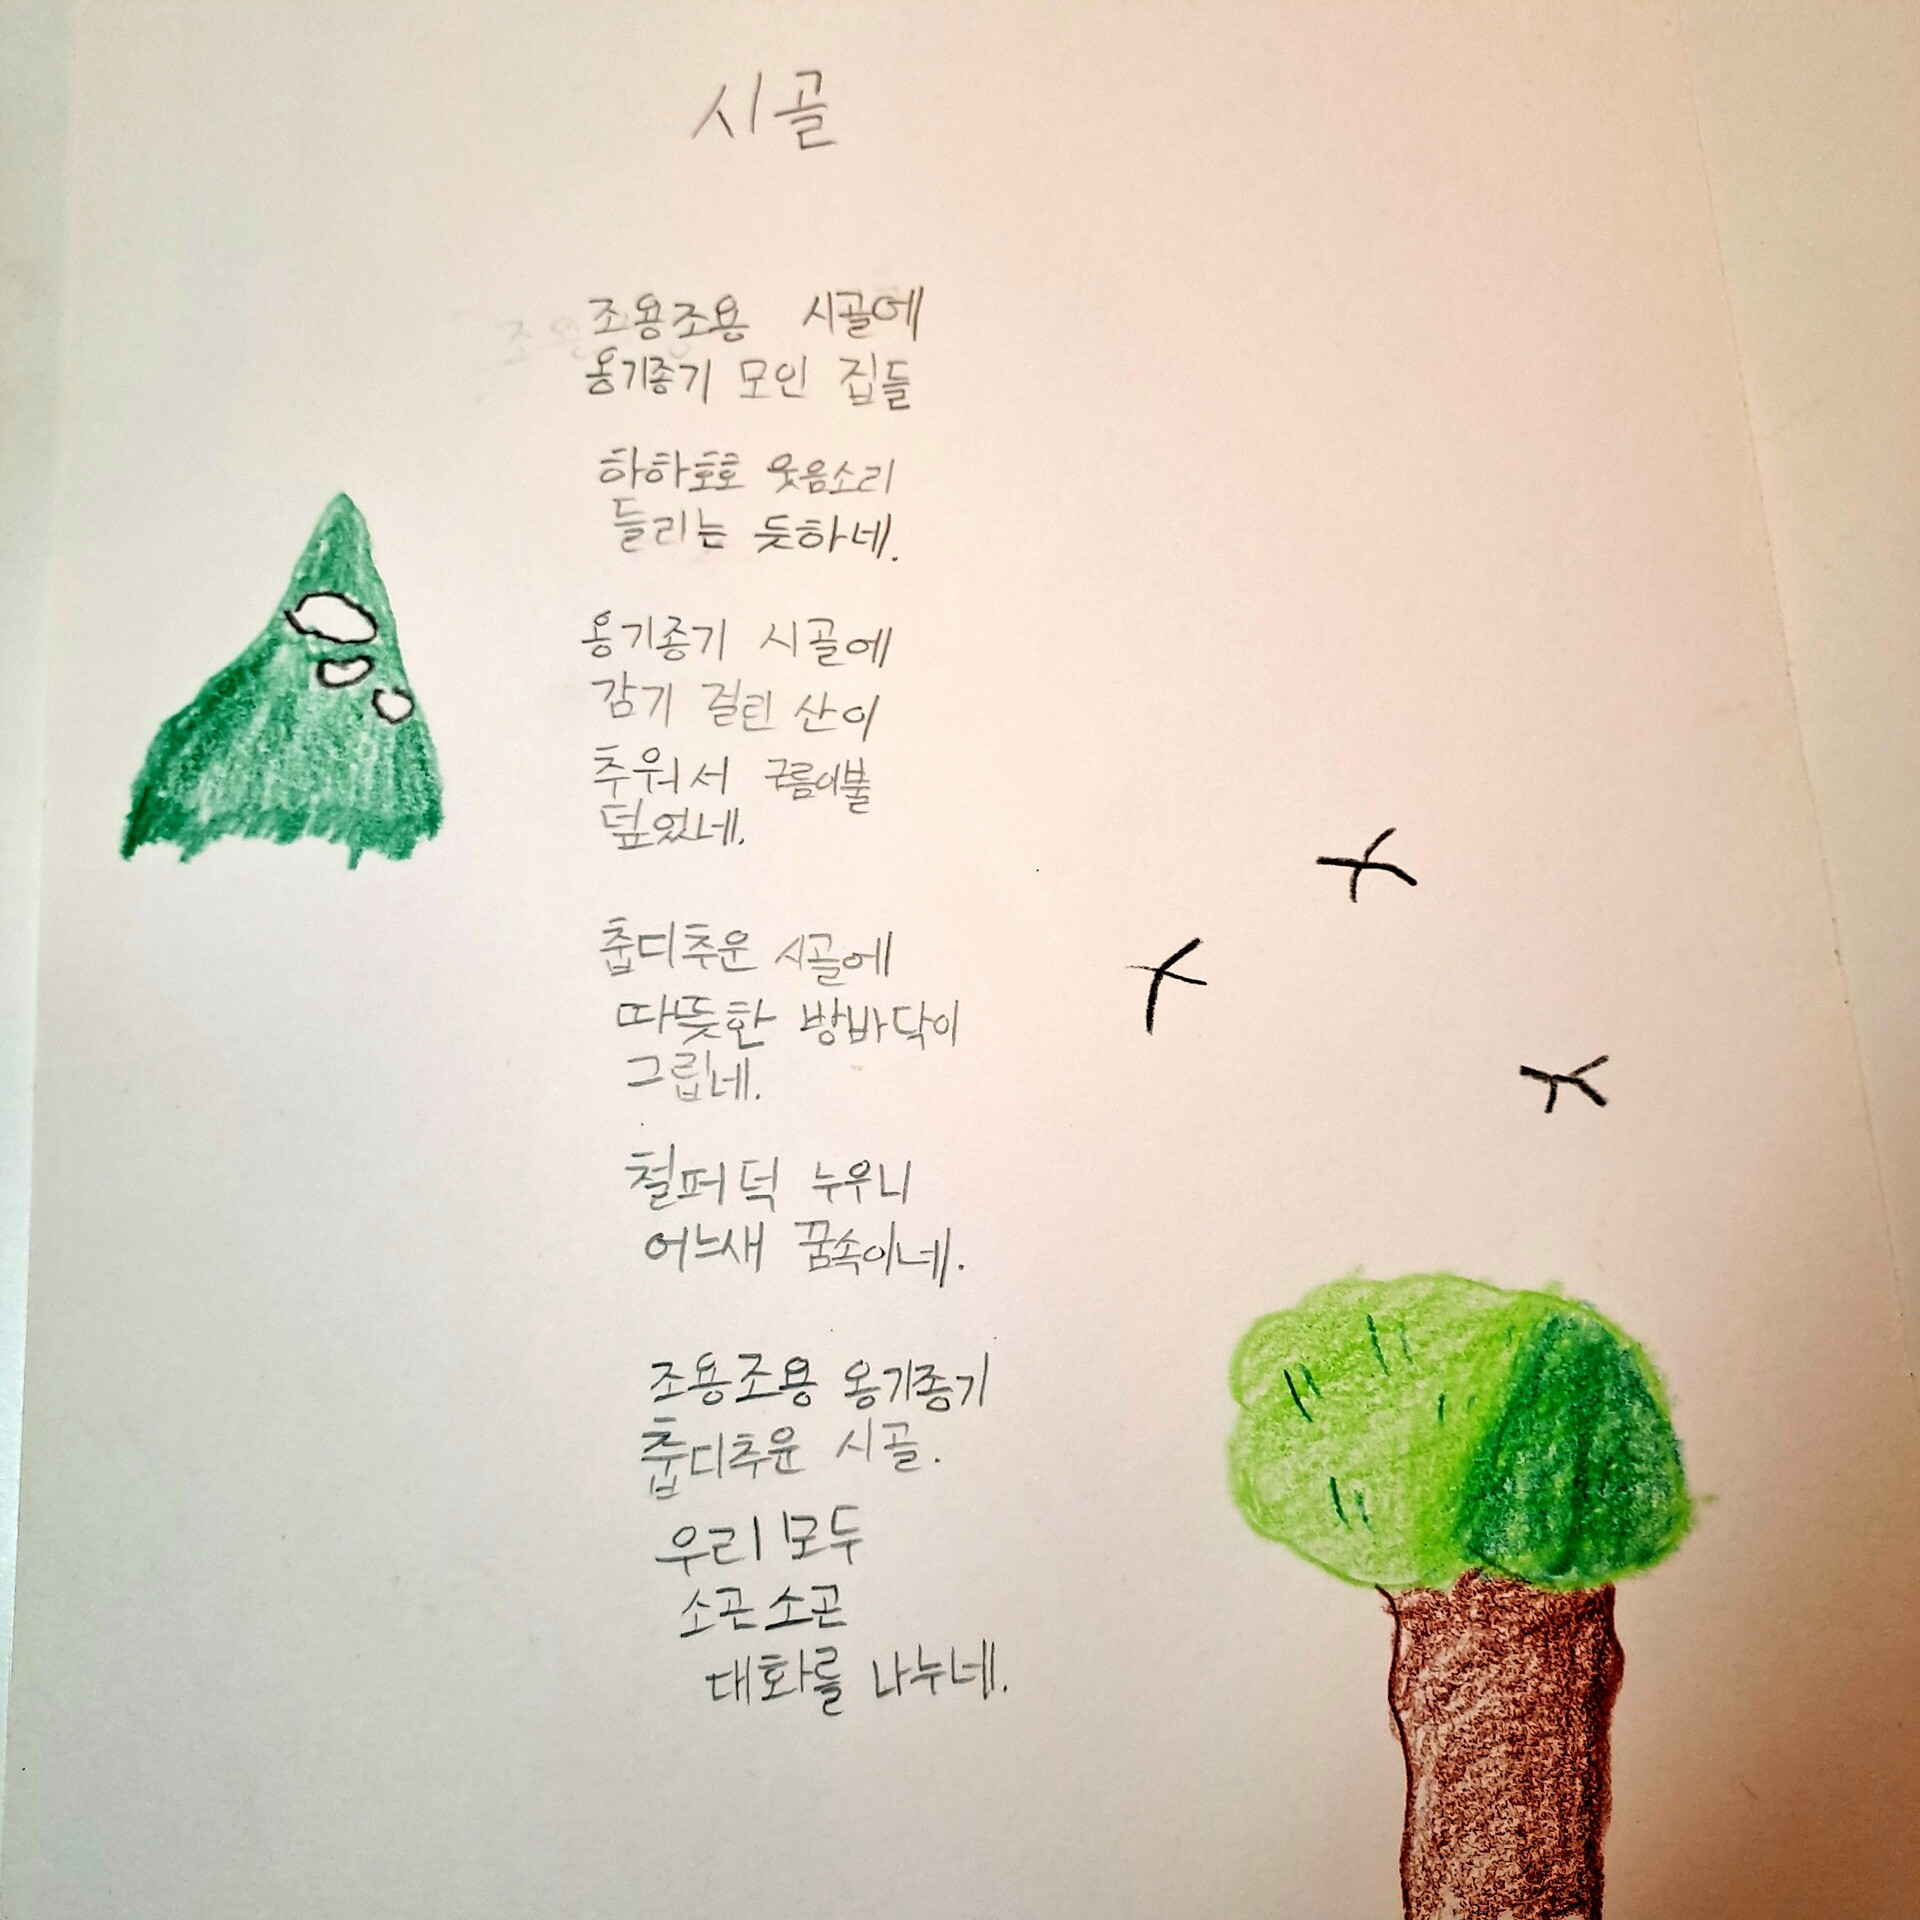 시골
조용조용 시골에
옹기종기 모인 집들
하하호호 웃음소리
들리는 듯하네.
옹기종기 시골에
감기 걸린 산이
추워서 구름이불
덮었네.
춥디추운 시골에
따뜻한 방바닥이
그립네.
철퍼덕 누우니
어느새 꿈속이네.
조용조용 옹기종기
춥디추운 시골.
우리 모두
소곤소곤
대화를 나누네.